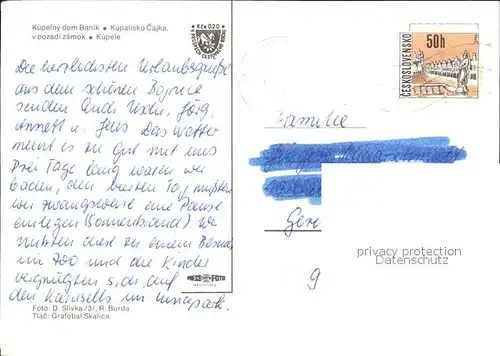 Kúpeľný dom Baník • Kúpalisko Čajka,
v pozadí zámok • Kúpele
Kčs 0,20
ČESKOSLOVENSKO
50h
Die herzlichsten Urlaubsgrüße
aus dem schönen Bojnice
senden Euch Uschi, Jörg,
Annett u. Jens Das Wetter
meint es zu gut mit uns
Drei Tage lang waren wir
baden, den vierten Tag mußten
wir zwangsweise eine Pause
einlegen (Sonnenbrand). Wir
nutzten diese zu einem Besuch
im Zoo und die Kinder
vergnügten sich auf
den Karussells im
Familie
Gera
9
privacy protection
Datenschutz
PRESS FOTO
Foto: D. Slivka /3/, R. Burda
Tlač: Grafobal Skalica